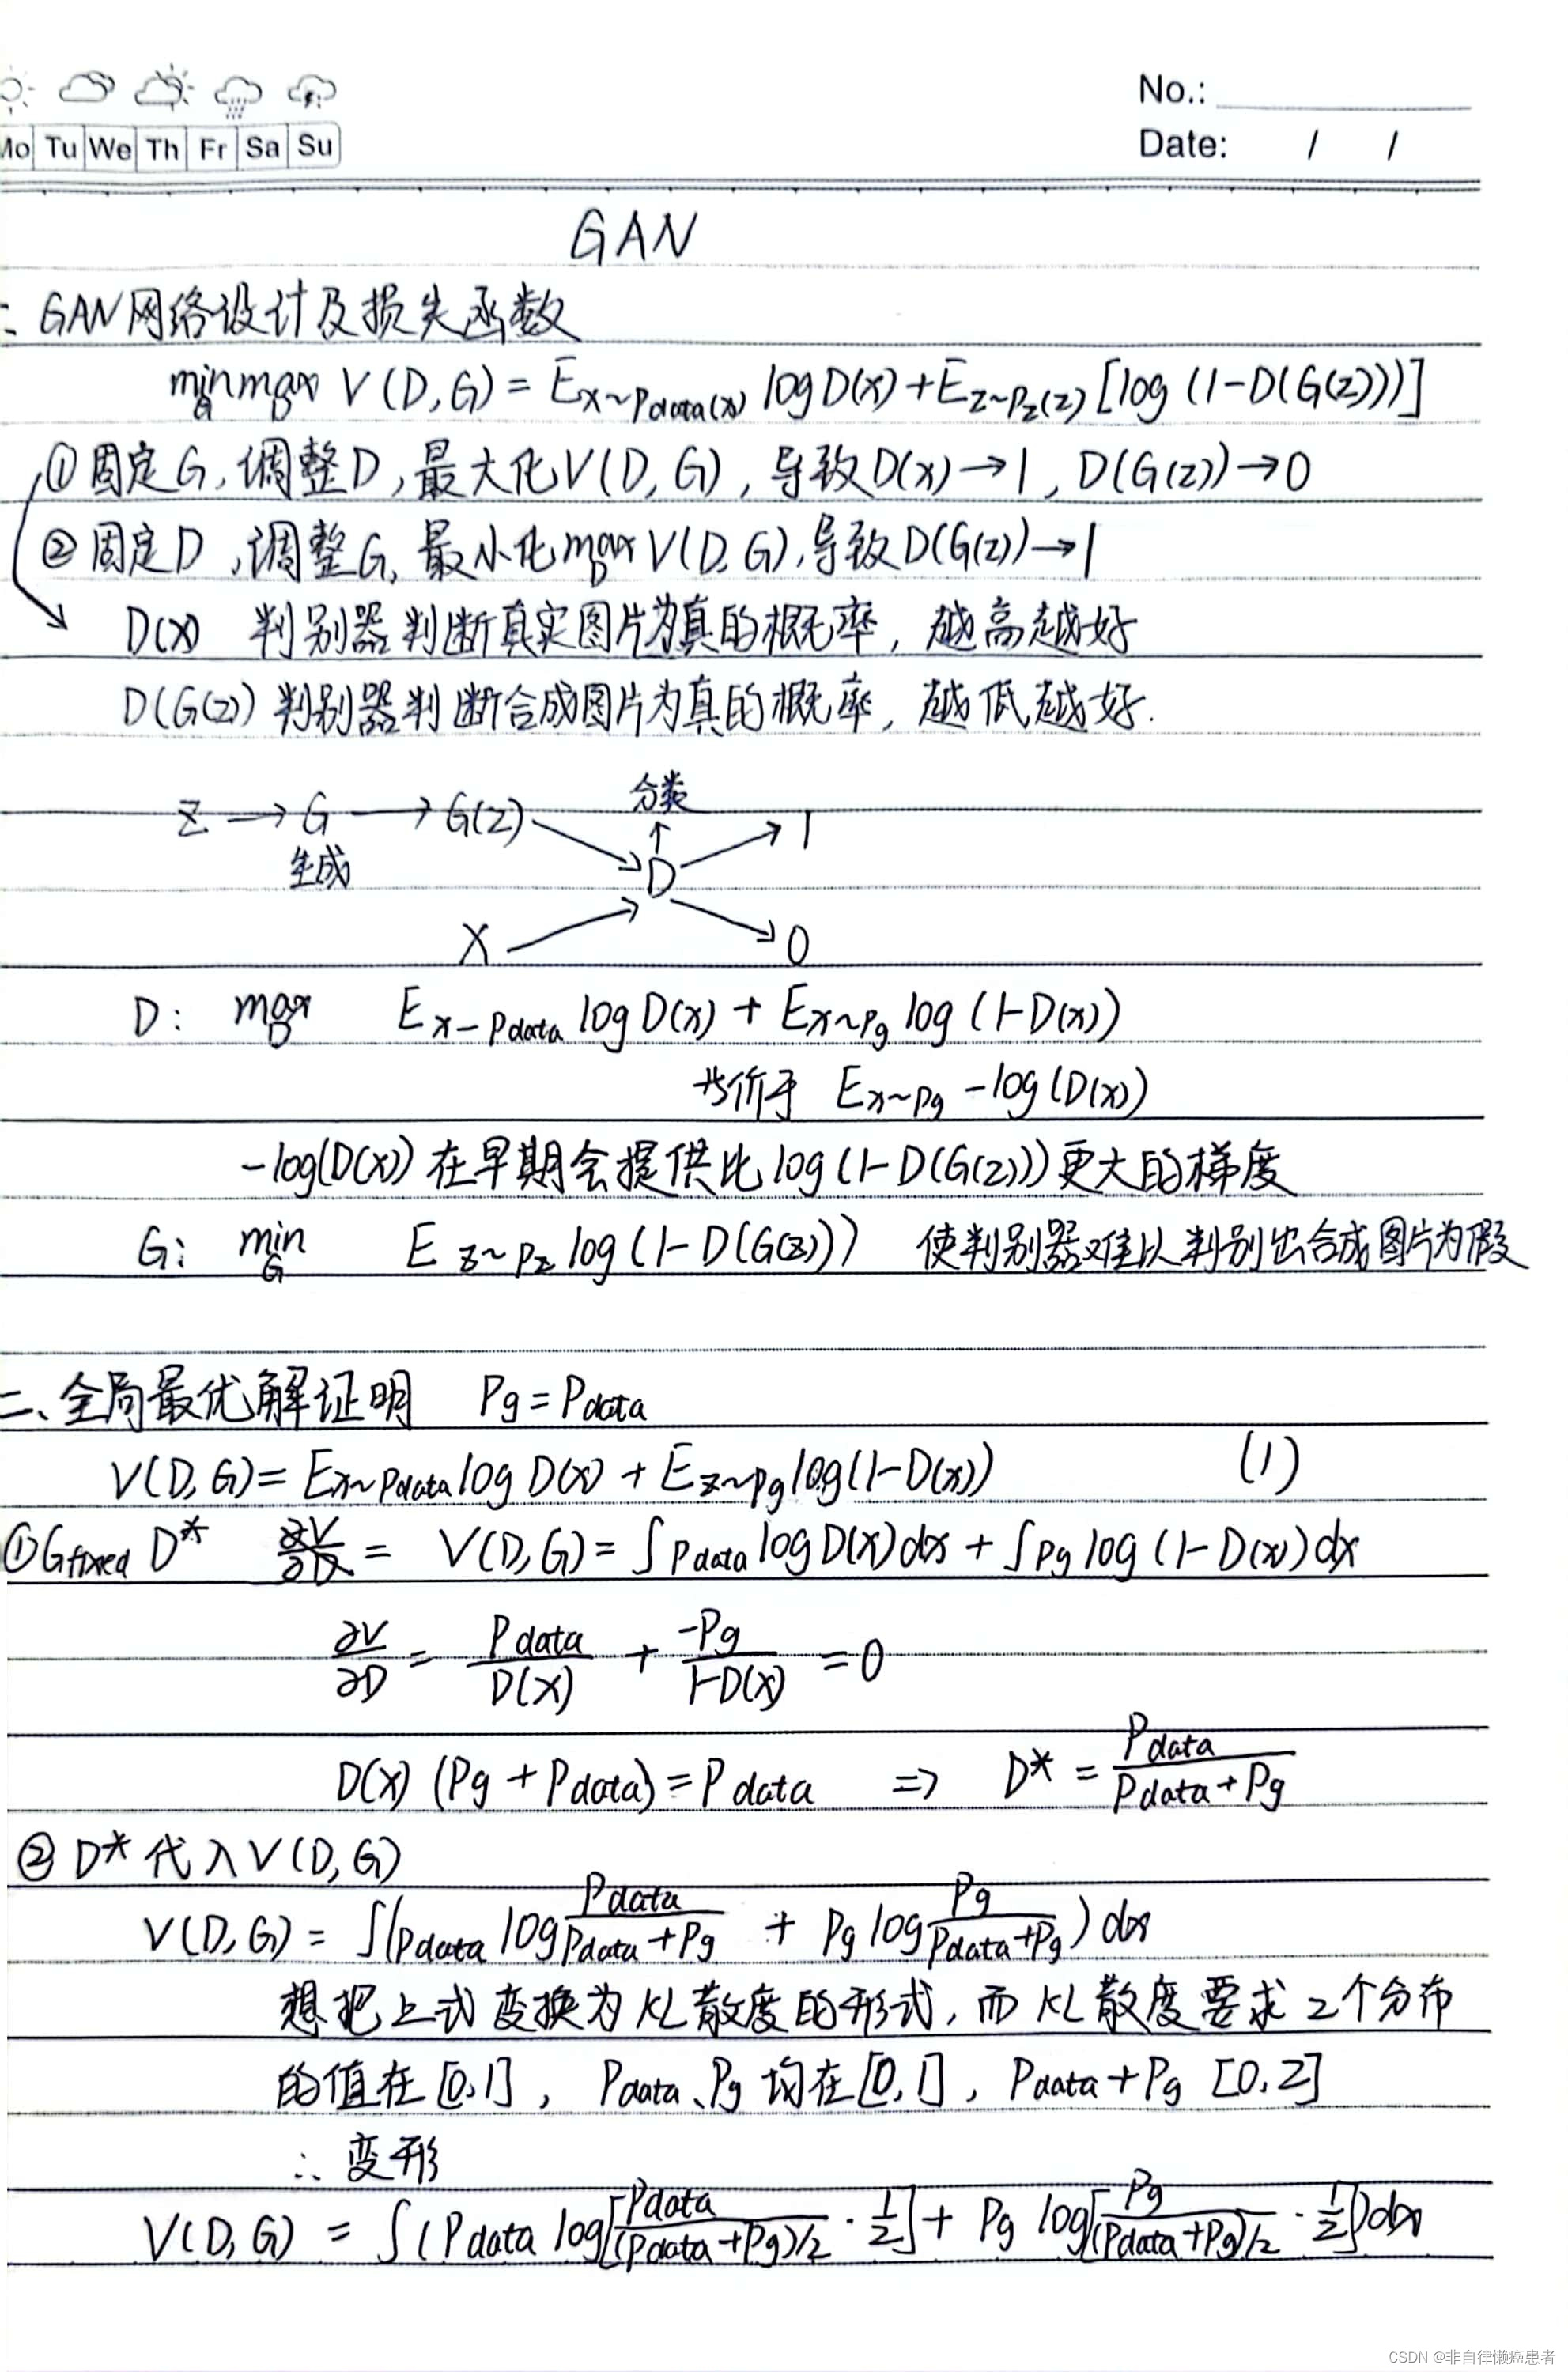 Mo Tu We Th Fr Sa Su
No.:
Date: / /
GAN
: GAN网络设计及损失函数
min_G max_D V(D,G) = E_{x~Pdata(x)} log D(x) + E_{z~Pz(z)} [log (1-D(G(z)))]
① 固定G, 调整D, 最大化V(D,G), 导致D(x)→1, D(G(z))→0
② 固定D, 调整G, 最小化 max_D V(D,G), 导致D(G(z))→1
D(x) 判别器判断真实图片为真的概率, 越高越好
D(G(z)) 判别器判断合成图片为真的概率, 越低越好.
分类
Z → G → G(z) ↑ 1
生成 D
X 0
D: max_D E_{x-Pdata} log D(x) + E_{x~Pg} log (1-D(x))
等价于 E_{x~Pg} -log(D(x))
-log(D(x)) 在早期会提供比 log(1-D(G(z))) 更大的梯度
G: min_G E_{z~Pz} log(1-D(G(z))) 使判别器难以判别出合成图片为假
二、全局最优解证明 Pg = Pdata
V(D,G) = E_{x~Pdata} log D(x) + E_{z~Pg} log(1-D(x)) (1)
① G fixed D* ∂V/∂D = V(D,G) = ∫Pdata log D(x)dx + ∫Pg log (1-D(x))dx
∂V/∂D = Pdata/D(x) + -Pg/(1-D(x)) = 0
D(x) (Pg + Pdata) = Pdata ⇒ D* = Pdata/(Pdata + Pg)
② D* 代入 V(D,G)
V(D,G) = ∫(Pdata log Pdata/(Pdata+Pg) + Pg log Pg/(Pdata+Pg)) dx
想把上式变换为KL散度的形式, 而KL散度要求2个分布
的值在[0,1], Pdata、Pg 均在[0,1], Pdata+Pg [0,2]
∴ 变形
V(D,G) = ∫(Pdata log[Pdata/((Pdata+Pg)/2) · 1/2] + Pg log[Pg/((Pdata+Pg)/2) · 1/2])dx
CSDN @非自律懒癌患者